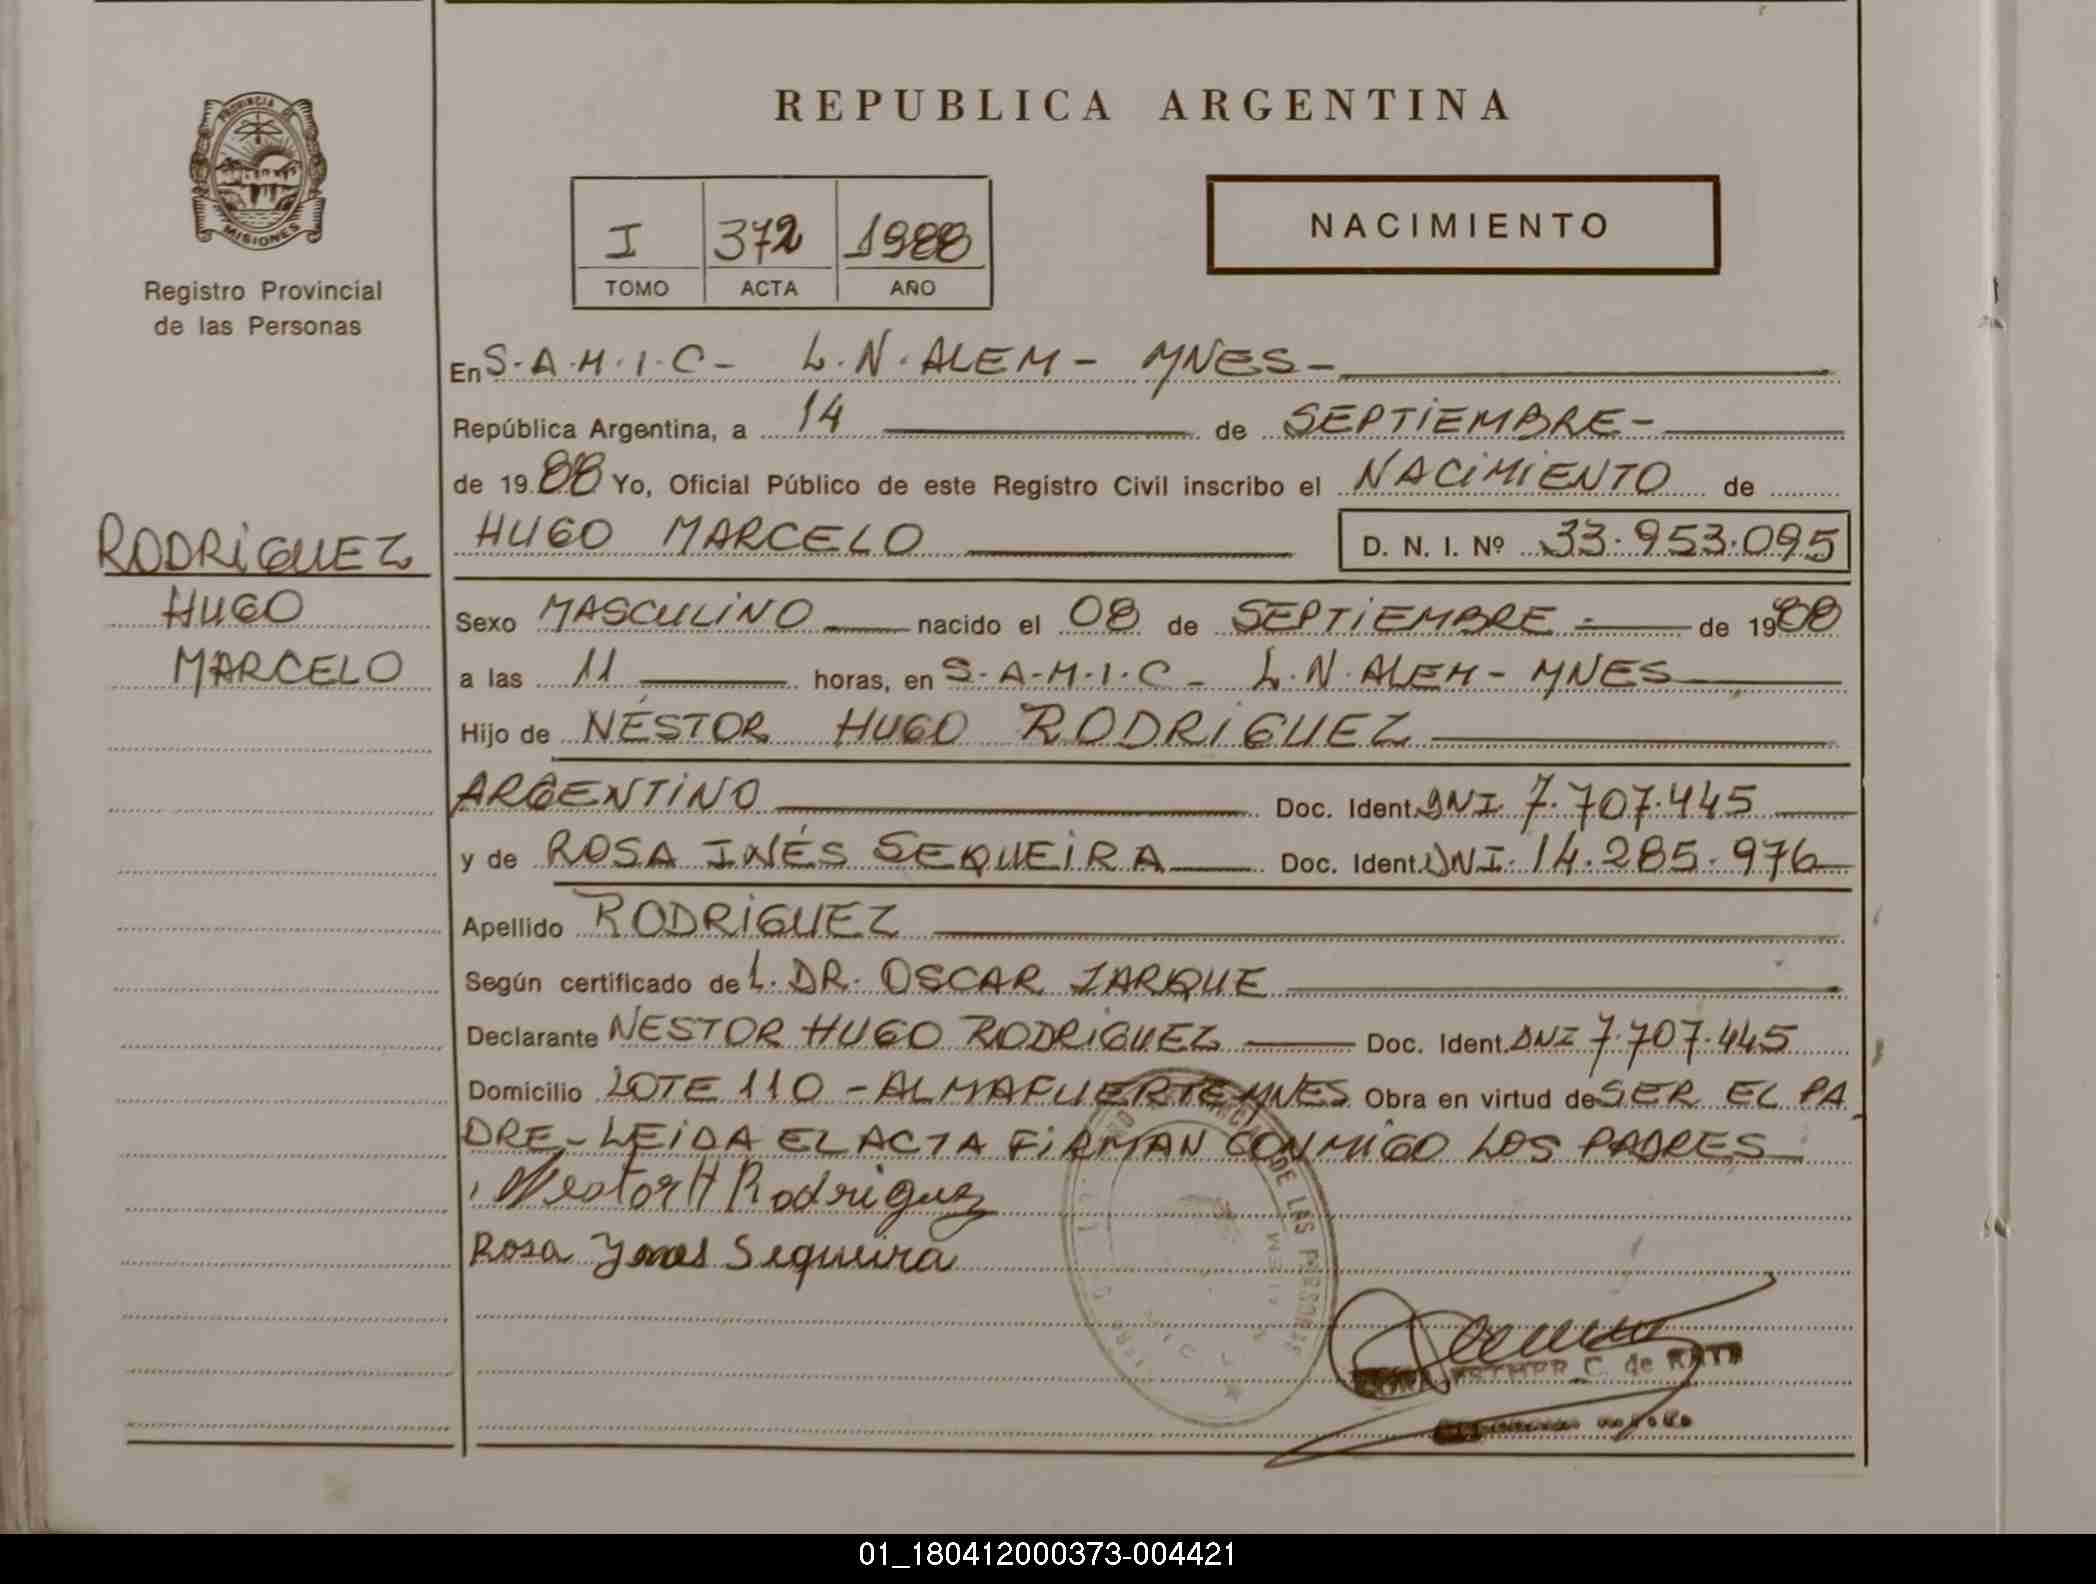 PROVINCIA DE
MISIONES
Registro Provincial
de las Personas
RODRIGUEZ
HUGO
MARCELO
REPUBLICA ARGENTINA
I 372 1988
TOMO ACTA AÑO
NACIMIENTO
En S.A.M.I.C- L.N.ALEM- MNES-
República Argentina, a 14 de SEPTIEMBRE-
de 1988 Yo, Oficial Público de este Registro Civil inscribo el NACIMIENTO de
HUGO MARCELO D. N. I. Nº 33.953.095
Sexo MASCULINO nacido el 08 de SEPTIEMBRE - de 1988
a las 11 horas, en S.A.M.I.C- L.N.ALEM- MNES
Hijo de NÉSTOR HUGO RODRIGUEZ
ARGENTINO Doc. Ident. DNI 7.707.445
y de ROSA INÉS SEQUEIRA Doc. Ident. DNI. 14.285.976
Apellido RODRIGUEZ
Según certificado de L. DR. OSCAR ZARQUE
Declarante NESTOR HUGO RODRIGUEZ Doc. Ident. DNI 7.707.445
Domicilio LOTE 110 - ALMAFUERTE MNES Obra en virtud de SER EL PA
DRE- LEIDA EL ACTA FIRMAN CONMIGO LOS PADRES
Nestor H Rodriguez
Rosa Ynes Sequeira
DE LAS PERSONAS
C. de
01_180412000373-004421